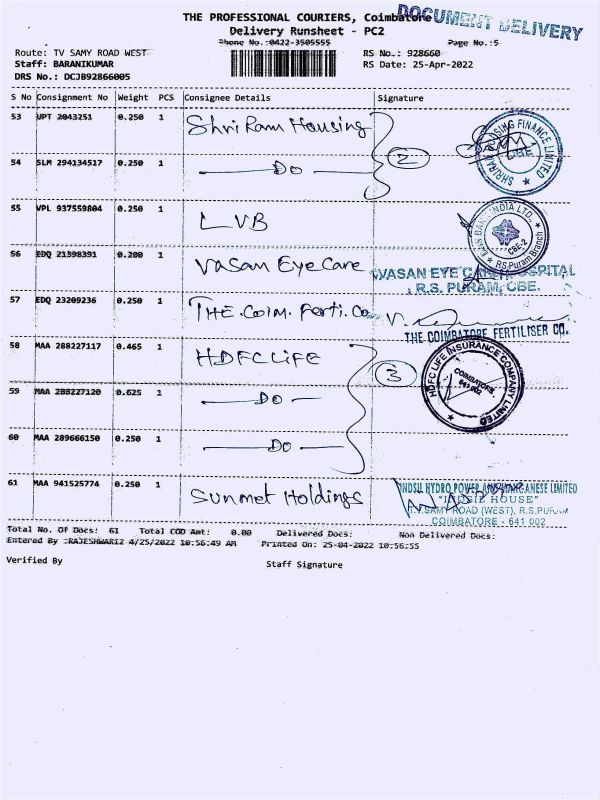 THE PROFESSIONAL COURIERS, Coimbatore
DOCUMENT DELIVERY
Delivery Runsheet - PC2
Phone No.:0422-3505555
Page No.:5
Route: TV SAMY ROAD WEST
RS No.: 928660
Staff: BARANIKUMAR
RS Date: 25-Apr-2022
DRS No.: DCJB92866005
S No Consignment No Weight PCS Consignee Details Signature
53 UPT 2043251 0.250 1 Shri Ram Housing
2
SHRIRAM HOUSING FINANCE LIMITED
CBE.
54 SLM 294134517 0.250 1 — Do —
55 VPL 937559804 0.250 1 LVB
BANK INDIA LTD.
CBE-2
R.S.Puram Branch
56 EDQ 21398391 0.200 1 Vasan Eye Care
VASAN EYE CARE HOSPITAL
R.S. PURAM, CBE.
57 EDQ 23209236 0.250 1 THE. Coim. Ferti. Co
THE COIMBATORE FERTILISER CO.
58 MAA 288227117 0.465 1 HDFC LIFE
3
HDFC LIFE INSURANCE COMPANY LIMITED
COIMBATORE
641 002
59 MAA 288227120 0.625 1 — Do —
60 MAA 289666150 0.250 1 — Do —
61 MAA 941525774 0.250 1 Sunmet Holdings
INDSIL HYDRO POWER AND MANGANESE LIMITED
"INDSIL HOUSE"
T.V.SAMY ROAD (WEST), R.S.PURAM
COIMBATORE - 641 002
Total No. Of Docs: 61 Total COD Amt: 0.00 Delivered Docs: Non Delivered Docs:
Entered By :RAJESHWARI2 4/25/2022 10:56:49 AM Printed On: 25-04-2022 10:56:55
Verified By
Staff Signature